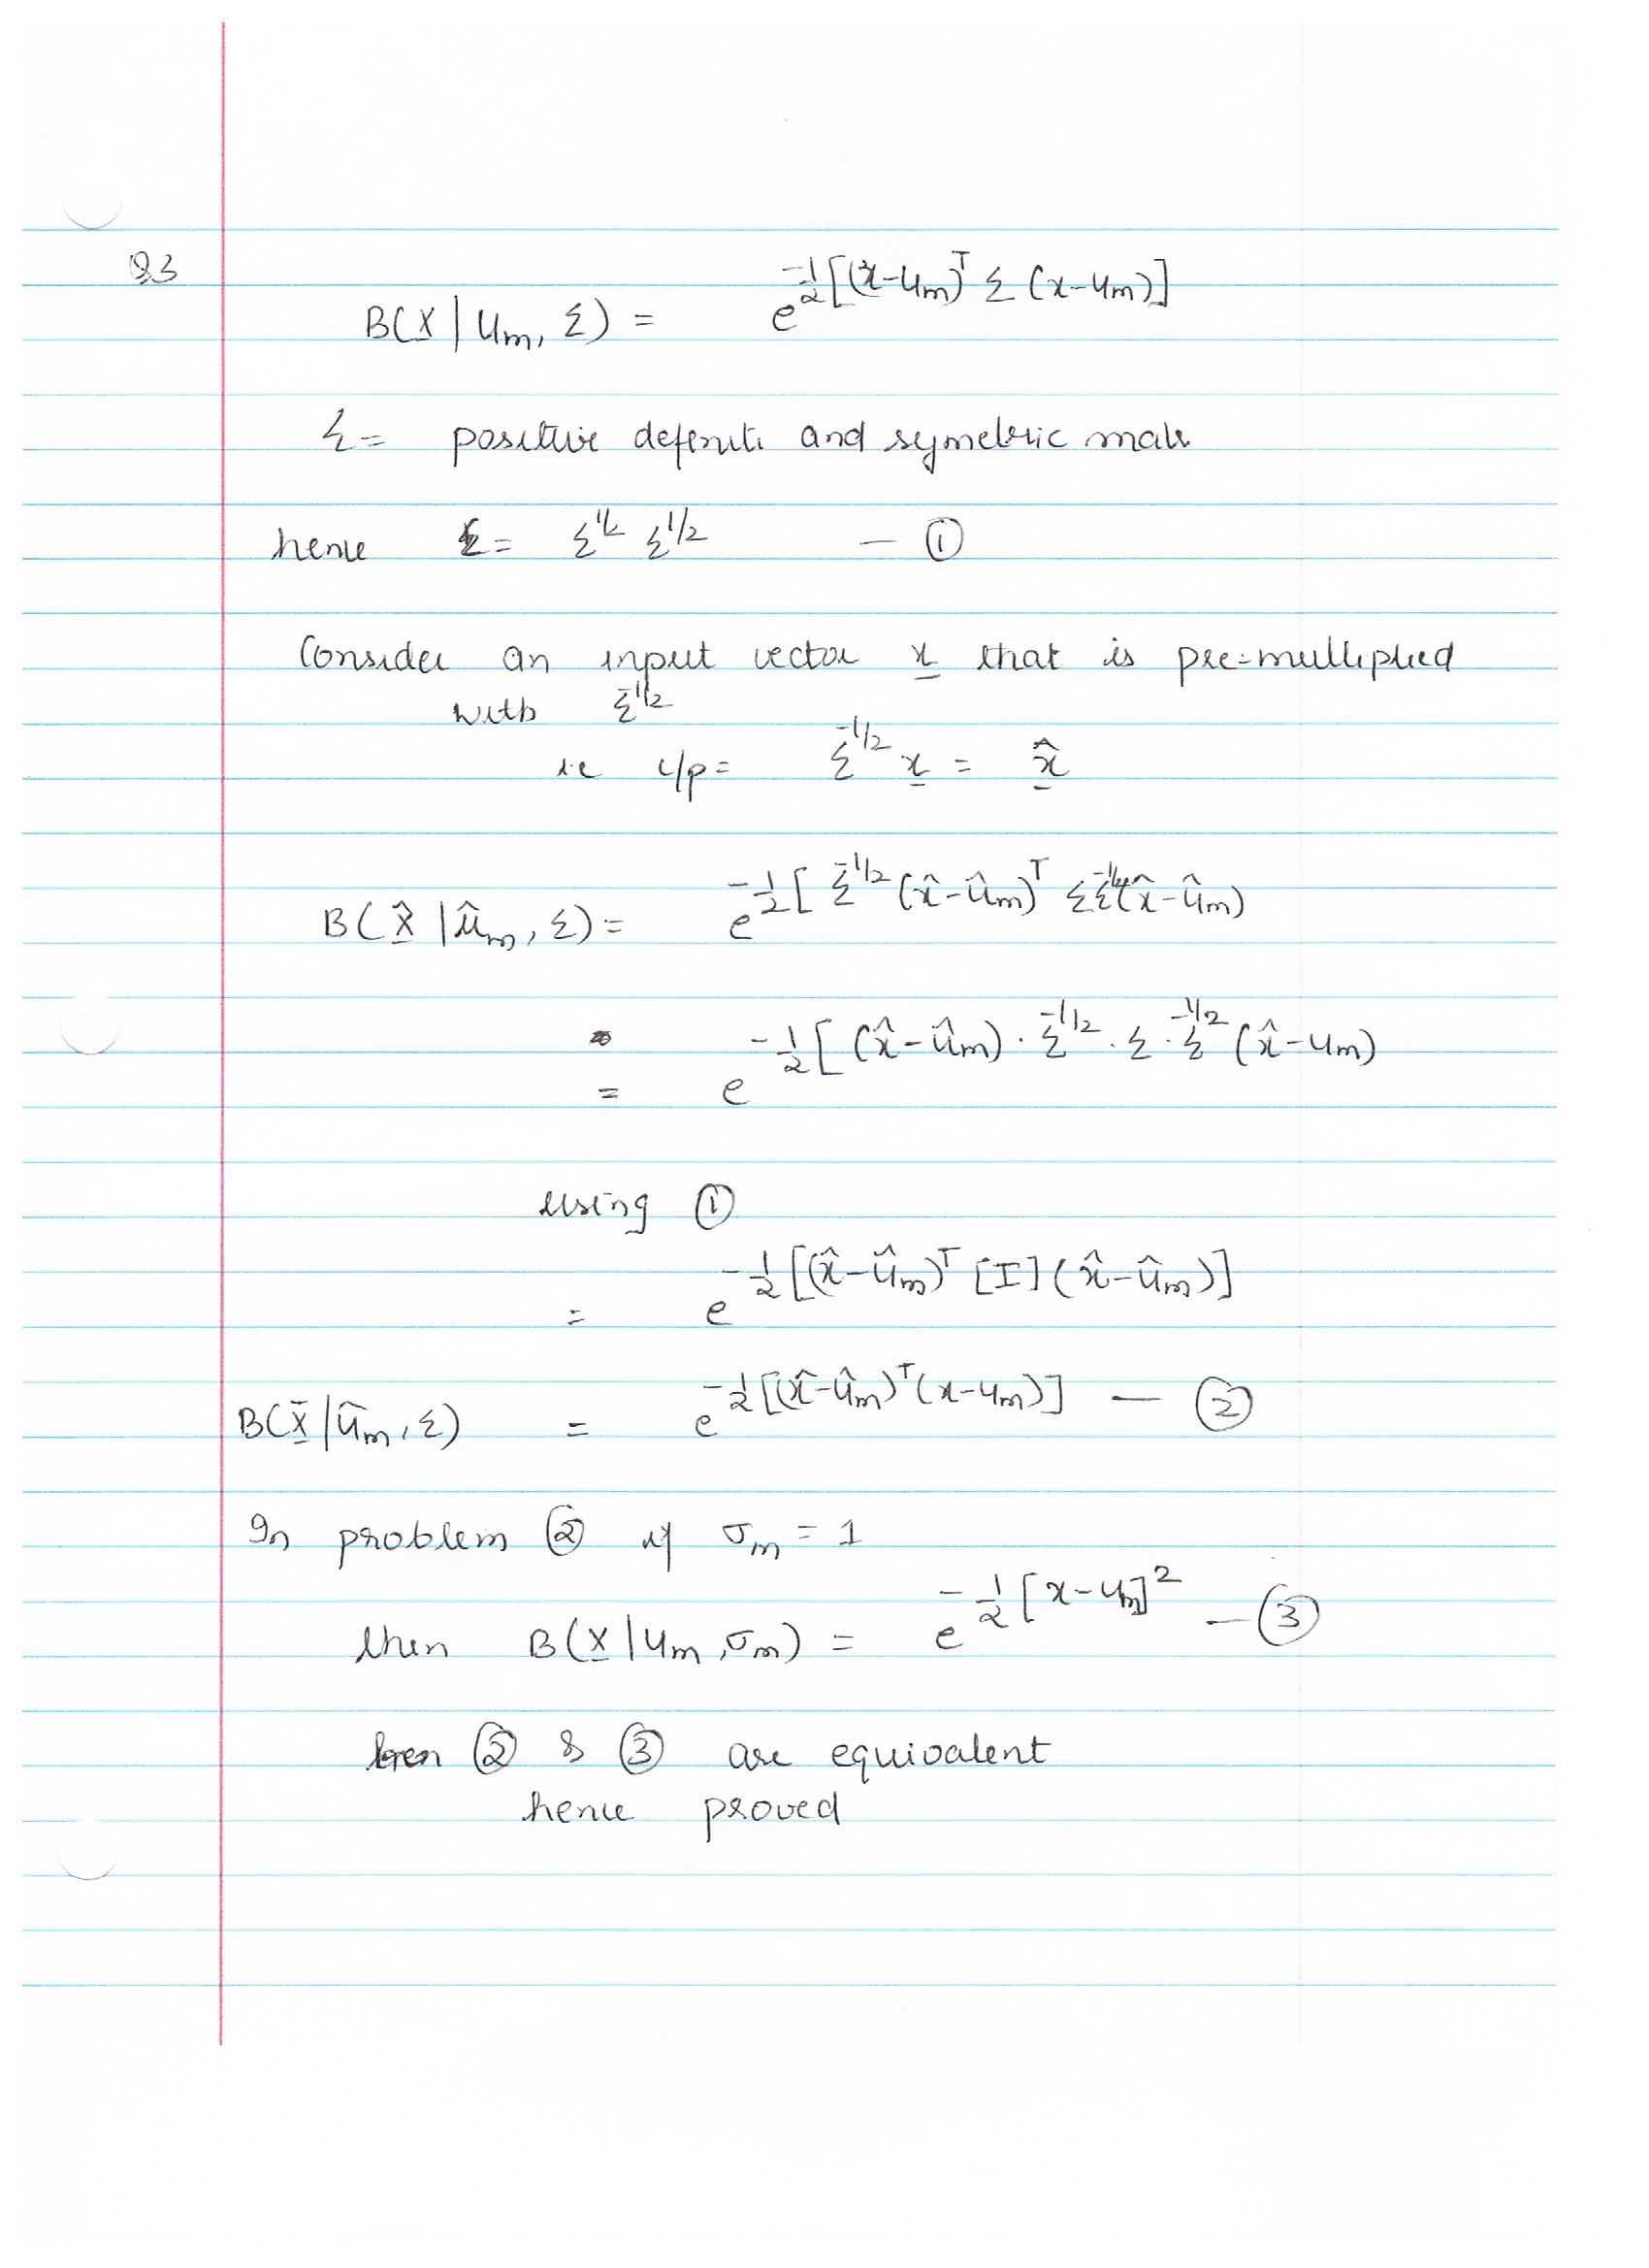 Q3
B(X | um, Σ) = e^{-1/2[(x-um)^T Σ (x-um)]}
Σ = positive definite and symetric matr
hence Σ = Σ^{1/2} Σ^{1/2} — ①
Consider an input vector x that is pre-multiplied
with Σ^{-1/2}
i.e i/p = Σ^{-1/2} x = x̂
B(X̂ | ûm, Σ) = e^{-1/2[Σ^{-1/2}(x̂-ûm)^T Σ Σ^{-1/2}(x̂-ûm)}
= e^{-1/2[(x̂-ûm) · Σ^{-1/2} · Σ · Σ^{-1/2}(x̂-um)}
using ①
= e^{-1/2[(x̂-ûm)^T [I] (x̂-ûm)]}
B(X̂ | ûm, Σ) = e^{-1/2[(x̂-ûm)^T(x-um)]} — ②
In problem ② if σm = 1
then B(X | um, σm) = e^{-1/2[x-um]^2} — ③
② & ③ are equivalent
hence proved